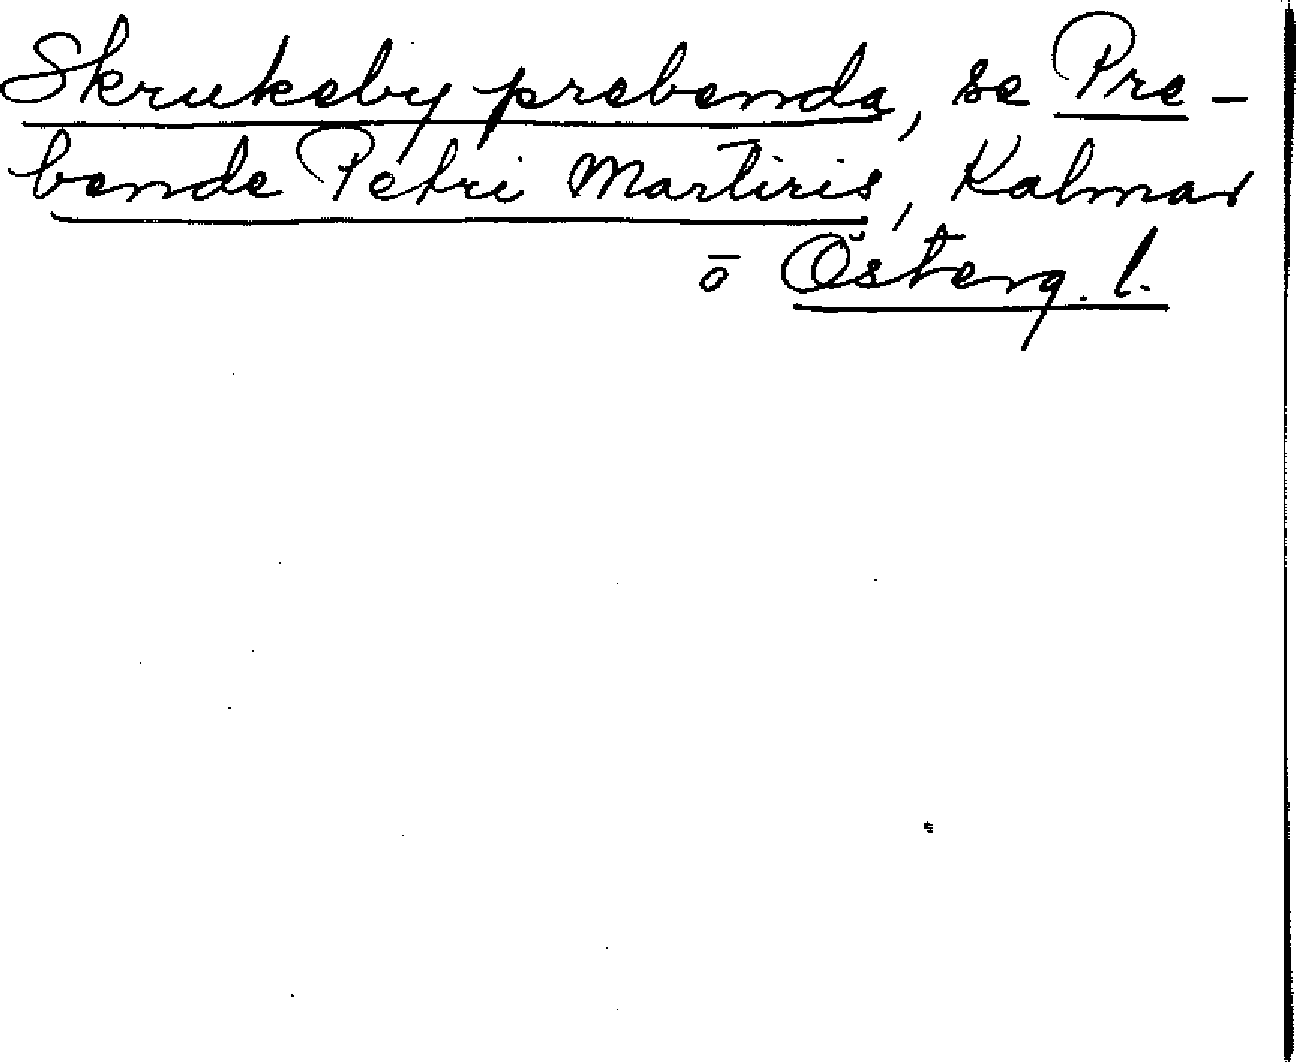 Skrukeby prebenda, se Pre-
bende Petri Martiris, Kalmar
ō Österg. l.